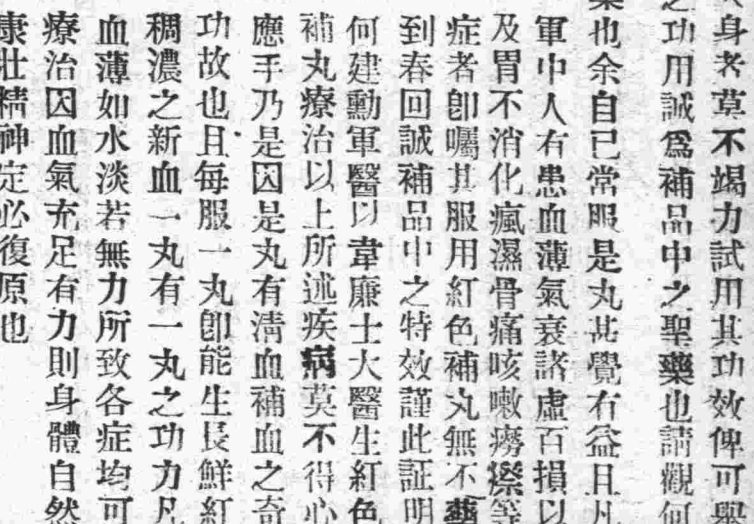 身者莫不竭力試用其功效俾可與
之功用誠爲補品中之聖藥也請觀何
藥也余自已常服是丸甚覺有益且凡
軍中人有患血薄氣衰諸虛百損以
及胃不消化瘋濕骨痛咳嗽癆瘵等
症者卽囑其服用紅色補丸無不藥
到春回誠補品中之特效謹此証明
何建勳軍醫以韋廉士大醫生紅色
補丸療治以上所述疾病莫不得心
應手乃是因是丸有清血補血之奇
功故也且每服一丸卽能生長鮮紅
稠濃之新血一丸有一丸之功力凡
血薄如水淡若無力所致各症均可
療治因血氣充足有力則身體自然
康壯精神定必復原也